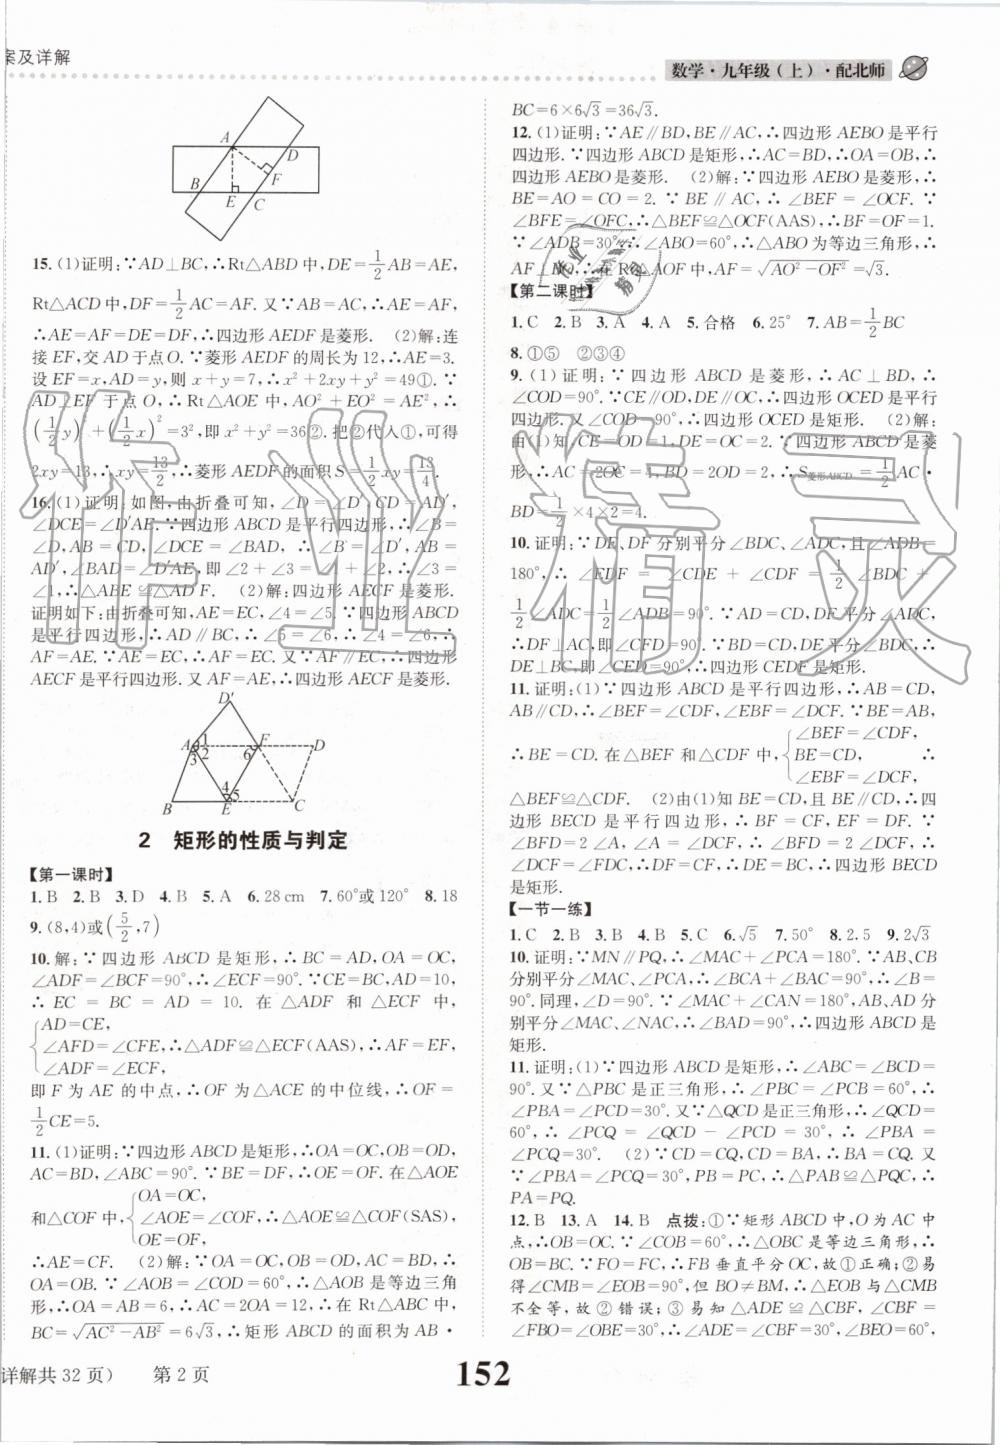 案及详解
数学·九年级(上)·配北师
A
D
B
F
E
C
15. (1)证明:∵AD⊥BC,∴Rt△ABD中,DE=1/2AB=AE,
Rt△ACD中,DF=1/2AC=AF. 又∵AB=AC,∴AE=AF,
∴AE=AF=DE=DF,∴四边形AEDF是菱形. (2)解:连
接EF,交AD于点O. ∵菱形AEDF的周长为12,∴AE=3.
设EF=x,AD=y,则x+y=7,∴x²+2xy+y²=49①. ∵
AD⊥EF于点O,∴Rt△AOE中,AO²+EO²=AE²,∴
(1/2y)²+(1/2x)²=3²,即x²+y²=36②. 把②代入①,可得
2xy=13,∴xy=13/2,∴菱形AEDF的面积S=1/2xy=13/4.
16. (1)证明:如图,由折叠可知,∠D=∠D′,CD=AD′,
∠DCE=∠D′AE. ∵四边形ABCD是平行四边形,∴∠B=
∠D,AB=CD,∠DCE=∠BAD, ∴∠B=∠D′,AB=
AD′,∠BAD=∠D′AE,即∠2+∠3=∠1+∠2,∴∠3=
∠1,∴△ABE≌△AD′F. (2)解:四边形AECF是菱形.
证明如下:由折叠可知,AE=EC,∠4=∠5. ∵四边形ABCD
是平行四边形,∴AD∥BC,∴∠5=∠6,∴∠4=∠6,∴
AF=AE. ∵AE=EC,∴AF=EC. 又∵AF∥EC,∴四边形
AECF是平行四边形. 又AF=AE,∴四边形AECF是菱形.
D′
A
1
2
3
6
F
D
4
5
B
E
C
2 矩形的性质与判定
【第一课时】
1. B 2. B 3. D 4. B 5. A 6. 28 cm 7. 60°或120° 8. 18
9. (8,4)或(5/2,7)
10. 解:∵四边形ABCD是矩形,∴BC=AD,OA=OC,
∠ADF=∠BCF=90°,∴∠ECF=90°. ∵CE=BC,AD=10,
∴EC=BC=AD=10. 在△ADF和△ECF中,
AD=CE,
∠AFD=∠CFE,∴△ADF≌△ECF(AAS),∴AF=EF,
∠ADF=∠ECF,
即F为AE的中点,∴OF为△ACE的中位线,∴OF=
1/2CE=5.
11. (1)证明:∵四边形ABCD是矩形,∴OA=OC,OB=OD,
AC=BD,∠ABC=90°. ∵BE=DF,∴OE=OF. 在△AOE
OA=OC,
和△COF中,∠AOE=∠COF,∴△AOE≌△COF(SAS),
OE=OF,
∴AE=CF. (2)解:∵OA=OC,OB=OD,AC=BD,∴
OA=OB. ∵∠AOB=∠COD=60°,∴△AOB是等边三角
形,∴OA=AB=6,∴AC=2OA=12,∴在Rt△ABC中,
BC=√(AC²-AB²)=6√3,∴矩形ABCD的面积为AB·
BC=6×6√3=36√3.
12. (1)证明:∵AE∥BD,BE∥AC,∴四边形AEBO是平行
四边形. ∵四边形ABCD是矩形,∴AC=BD,∴OA=OB,∴
四边形AEBO是菱形. (2)解:∵四边形AEBO是菱形,∴
BE=AO=CO=2. ∵BE∥AC,∴∠BEF=∠OCF. ∵
∠BFE=∠OFC,∴△BEF≌△OCF(AAS),∴BF=OF=1.
∵∠ADB=30°,∴∠ABO=60°,∴△ABO为等边三角形,∴
AF⊥BD,∴在Rt△AOF中,AF=√(AO²-OF²)=√3.
【第二课时】
1. C 2. B 3. A 4. A 5. 合格 6. 25° 7. AB=1/2BC
8. ①⑤ ②③④
9. (1)证明:∵四边形ABCD是菱形,∴AC⊥BD,∴
∠COD=90°. ∵CE∥OD,DE∥OC,∴四边形OCED是平行
四边形. 又∠COD=90°,∴四边形OCED是矩形. (2)解:
由(1)知,CE=OD=1,DE=OC=2. ∵四边形ABCD是菱
形,∴AC=2OC=4,BD=2OD=2,∴S菱形ABCD=1/2AC·
BD=1/2×4×2=4.
10. 证明:∵DE、DF分别平分∠BDC、∠ADC,且∠ADB=
180°,∴∠EDF=∠CDE+∠CDF=1/2∠BDC+
1/2∠ADC=1/2∠ADB=90°. ∵BD=CD,DE平分∠BDC,
∴DF⊥AC,即∠CFD=90°. ∵BD=CD,DE平分∠BDC,∴
DE⊥BC,即∠CED=90°,∴四边形CEDF是矩形.
11. 证明:(1)∵四边形ABCD是平行四边形,∴AB=CD,
AB∥CD,∴∠BEF=∠CDF,∠EBF=∠DCF. ∵BE=AB,
∠BEF=∠CDF,
∴BE=CD. 在△BEF和△CDF中,BE=CD, ∴
∠EBF=∠DCF,
△BEF≌△CDF. (2)由(1)知BE=CD,且BE∥CD,∴四
边形BECD是平行四边形,∴BF=CF,EF=DF. ∵
∠BFD=2∠A,∠A=∠DCF,∴∠BFD=2∠DCF,∴
∠DCF=∠FDC,∴DF=CF,∴DE=BC,∴四边形BECD
是矩形.
【一节一练】
1. C 2. B 3. B 4. B 5. C 6. √5 7. 50° 8. 2.5 9. 2√3
10. 证明:∵MN∥PQ,∴∠MAC+∠PCA=180°. ∵AB、CB
分别平分∠MAC、∠PCA,∴∠BCA+∠BAC=90°,∴∠B=
90°. 同理,∠D=90°. ∵∠MAC+∠CAN=180°,AB、AD分
别平分∠MAC、∠NAC,∴∠BAD=90°,∴四边形ABCD是
矩形.
11. 证明:(1)∵四边形ABCD是矩形,∴∠ABC=∠BCD=
90°. 又∵△PBC是正三角形,∴∠PBC=∠PCB=60°,∴
∠PBA=∠PCD=30°. 又∵△QCD是正三角形,∴∠QCD=
60°,∴∠PCQ=∠QCD-∠PCD=30°,∴∠PBA=
∠PCQ=30°. (2)∵CD=CQ,CD=BA,∴BA=CQ. 又
∵∠PBA=∠PCQ=30°,PB=PC,∴△PAB≌△PQC,∴
PA=PQ.
12. B 13. A 14. B 点拨:①∵矩形ABCD中,O为AC中
点,∴OB=OC. ∵∠COB=60°,∴△OBC是等边三角形,∴
OB=BC. ∵FO=FC,∴FB垂直平分OC,故①正确;②易
得∠CMB=∠EOB=90°,但BO≠BM,∴△EOB与△CMB
不全等,故②错误;③易知△ADE≌△CBF,∠CBF=
∠FBO=∠OBE=30°,∴∠ADE=∠CBF=30°,∠BFC=60°,
详解共32页) 第2页
152
作业精灵
作业
精灵